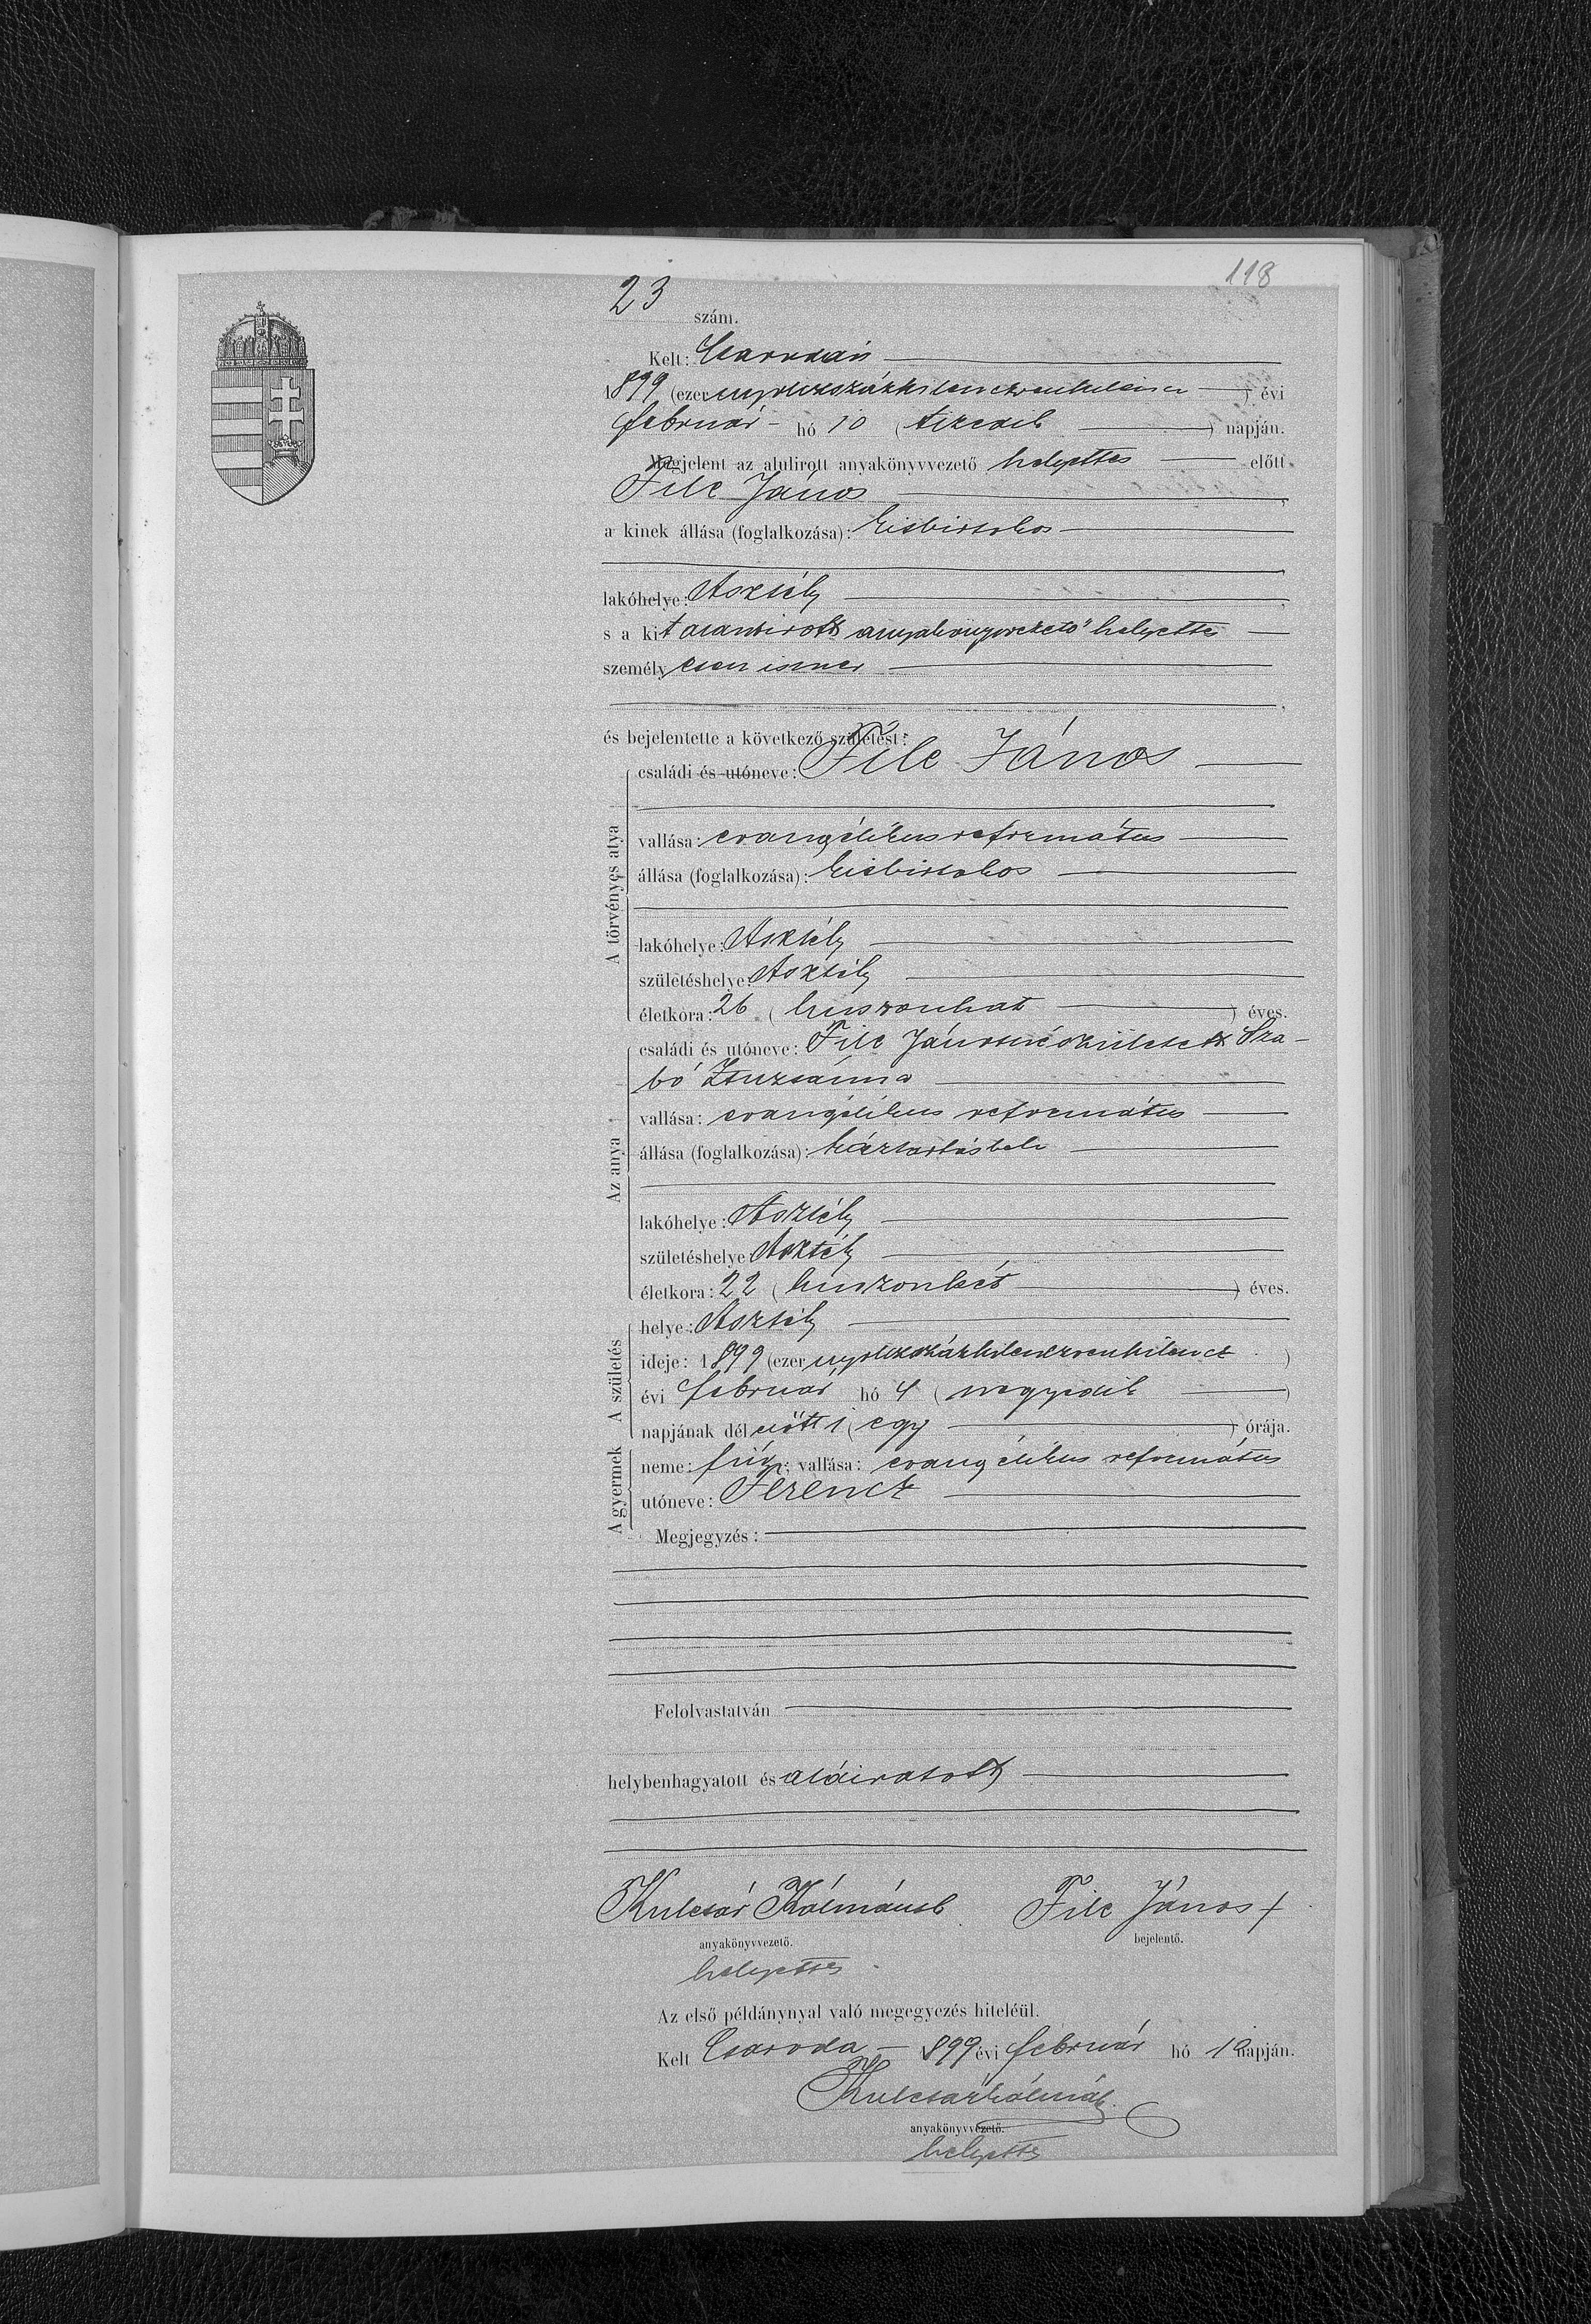 118
23 szám.
Kelt: Csarodán
1899 (ezer nyolczszázkilenczvenkilencz) évi
február hó 10 (tizedik) napján.
Megjelent az alulirott anyakönyvvezető helyettes előtt
File János,
a kinek állása (foglalkozása): kisbirtokos
lakóhelye: Asztély,
s a kit alantirott anyakönyvvezető helyettes
személyesen ismer
és bejelentette a következő születést:
A törvényes atya
családi és utóneve: File János
vallása: evangélikus református
állása (foglalkozása): kisbirtokos
lakóhelye: Asztély
születéshelye: Asztély
életkora: 26 (huszonhat) éves.
Az anya
családi és utóneve: File Jánosné született Sza-
bó Zsuzsánna
vallása: evangélikus református
állása (foglalkozása): háztartásbeli
lakóhelye: Asztély
születéshelye Asztély
életkora: 22 (huszonkét) éves.
A születés
helye: Asztély
ideje: 1899 (ezer nyolczszázkilenczvenkilencz)
évi február hó 4 (negyedik)
napjának délelőtt 1 (egy) órája.
A gyermek
neme: fiú; vallása: evangélikus református
utóneve: Ferencz
Megjegyzés:
Felolvastatván
helybenhagyatott és aláiratott
Kulcsár Kálmán File János +
anyakönyvvezető. bejelentő.
helyettes
Az első példánynyal való megegyezés hiteléül.
Kelt Csaroda 899 évi február hó 12 napján.
Kulcsár Kálmán
anyakönyvvezető.
helyettes